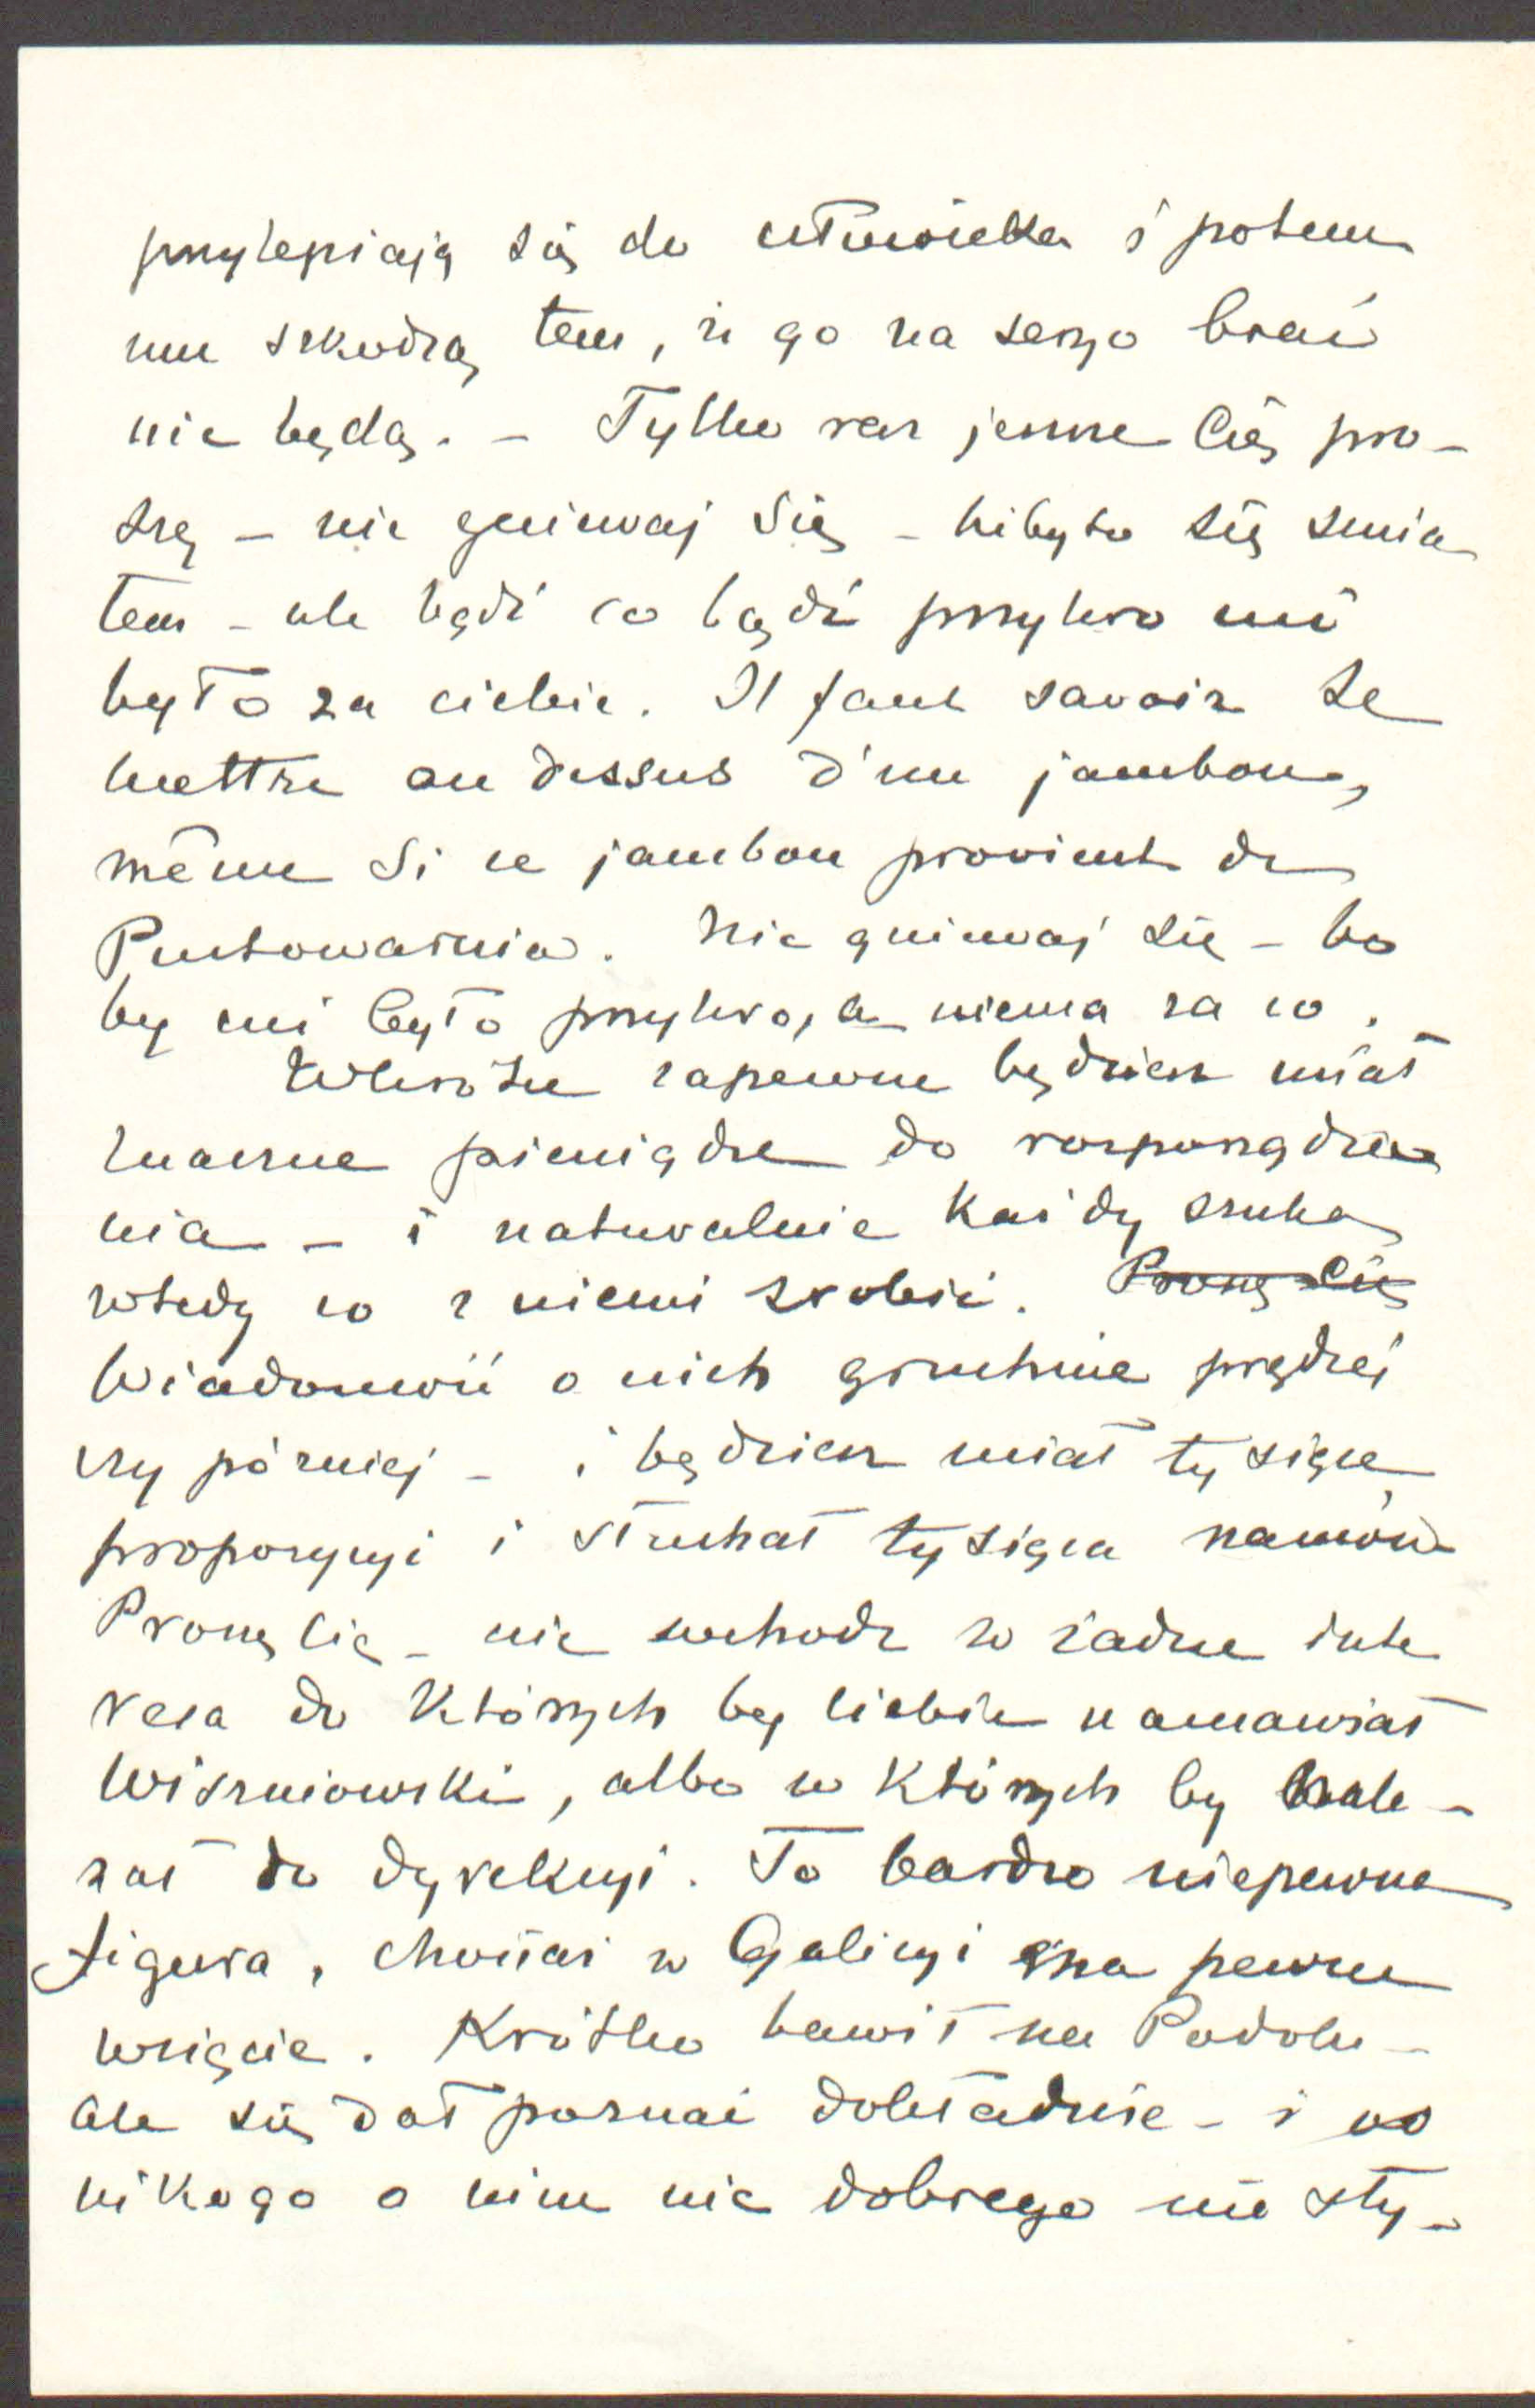 przylepiają się do człowieka i potem
mu szkodzą tem, że go na seryo brać
nie będą. - Tylko raz jeszcze Cię pro-
szę - nie gniewaj się - niby to się śmia
łem - ale bądź co bądź przykro mi
było za ciebie. Il faut savoir se
mettre au dessus d'un jambon,
même si ce jambon provient de
Pustowarnia. Nie gniewaj się - bo
by mi było przykro, a niema za co.
Wkrótce zapewne będziesz miał
znaczne pieniądze do rozporządze
nia - i naturalnie każdy szuka
wtedy co z niemi zrobić. Proszę Cię
Wiadomość o nich gruchnie prędzej
czy później - i będziesz miał tysiące
propozycyi i słuchał tysiąca namów
Proszę Cię - nie wchodź w żadne inte
resa do których by Ciebie namawiał
Wiśniowski, albo w których by nale-
żał do dyrekcyi. To bardzo niepewna
figura, chociaż w Galicyi ma pewne
wzięcie. Krótko bawił na Podolu -
ale się dał poznać dokładnie - i od
nikogo o nim nic dobrego nie sły-